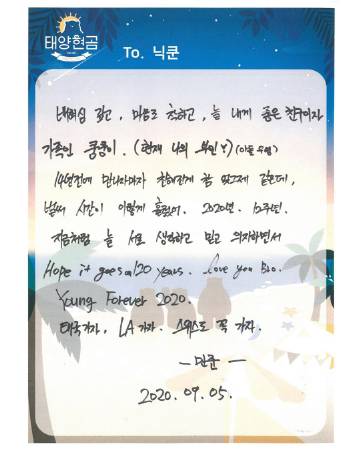 태양현금
To. 닉쿤
배려심 많고, 마음도 착하고, 늘 내게 좋은 친구이자
가족인 쿵쿵이. (현재 나의 부인 ♥) (아들 수영)
14년전에 만나자마자 친해진게 참 엊그제 같은데,
벌써 시간이 이렇게 흘렀어. 2020년. 12주년.
지금처럼 늘 서로 생각하고 믿고 의지하면서
Hope it goes on 120 years. Love you Bro.
Young Forever 2020.
태국가자, LA가자. 스위스도 꼭 가자.
- 민준 -
2020. 09. 05.